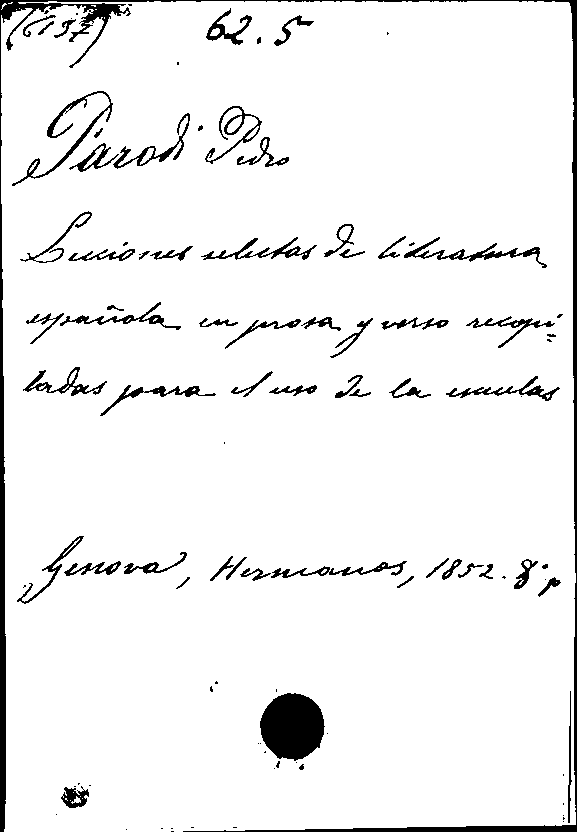 (6197) 62.5
Parodi Pedro
Lecciones selectas de literatura
española en prosa y verso recopi=
ladas para el uso de la escuelas
Genova, Hermanos, 1852. 8° p